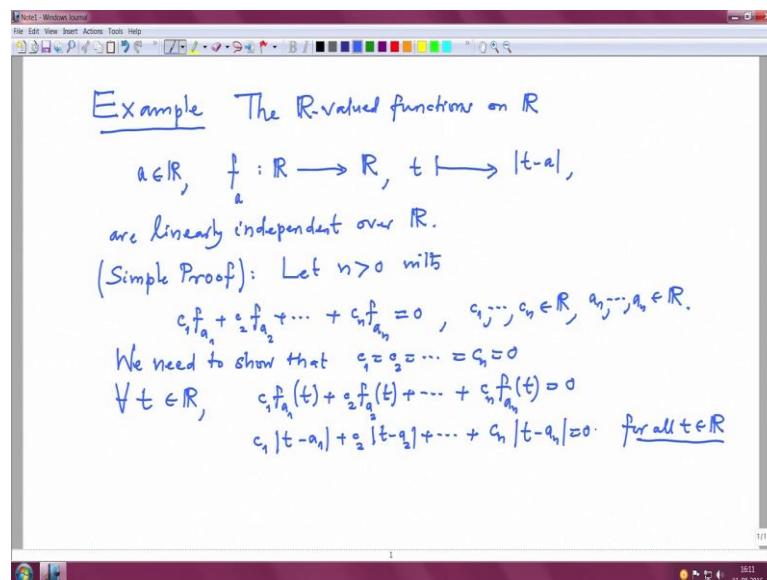 Note1 - Windows Journal
File Edit View Insert Actions Tools Help
Example The R-valued functions on ℝ
a∈ℝ, f_a : ℝ ⟶ ℝ, t ⟼ |t-a|,
are linearly independent over ℝ.
(Simple Proof): Let n>0 mit
c₁f_{a₁} + c₂f_{a₂} + ··· + cₙf_{aₙ} = 0 , c₁,···,cₙ∈ℝ, a₁,···,aₙ∈ℝ.
We need to show that c₁=c₂=···=cₙ=0
∀ t ∈ℝ, c₁f_{a₁}(t) + c₂f_{a₂}(t) + ··· + cₙf_{aₙ}(t) = 0
c₁|t-a₁| + c₂|t-a₂| + ··· + cₙ|t-aₙ| = 0. for all t∈ℝ
1/1
1
16:11